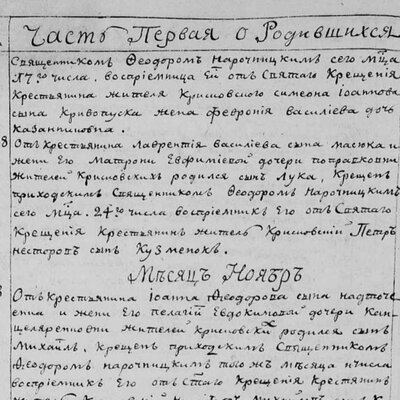 Часть Первая о Родившихся
Священникомъ Ѳеодоромъ Нарочицкимъ сего Мца
17го числа. воспріемница Ей отъ Святаго Крещенія
Крестьянина жителя Крисовского симеона Іоаннова
сына Кривопуска жена феѵронія василіева дочь
8 Отъ Крестьянина лаврентія василіева сына масюка и
жены Его Матрони Евфиміевой дочери
жителей Крисовскихъ родился сынъ Лука, Крещенъ
приходскимъ Священникомъ Ѳеодоромъ Нарочицкимъ
сего Мца. 24го числа воспріемникъ Его отъ Святаго
Крещенія Крестьянинъ житель Крисовскій Петръ
несторовъ сынъ Кузменокъ.
Мѣсяцъ Ноябръ
Отъ Крестьянина іоанна Ѳеодорова сына
и жены Его пелагіи Евдокимовой дочери
жителей крисовскихъ родился сынъ
Михаилъ. Крещенъ приходскимъ Священникомъ
Ѳеодоромъ нарочицкимъ того жъ мѣсяца и числа
воспріемникъ Его отъ Стаго Крещенія Крестянинъ